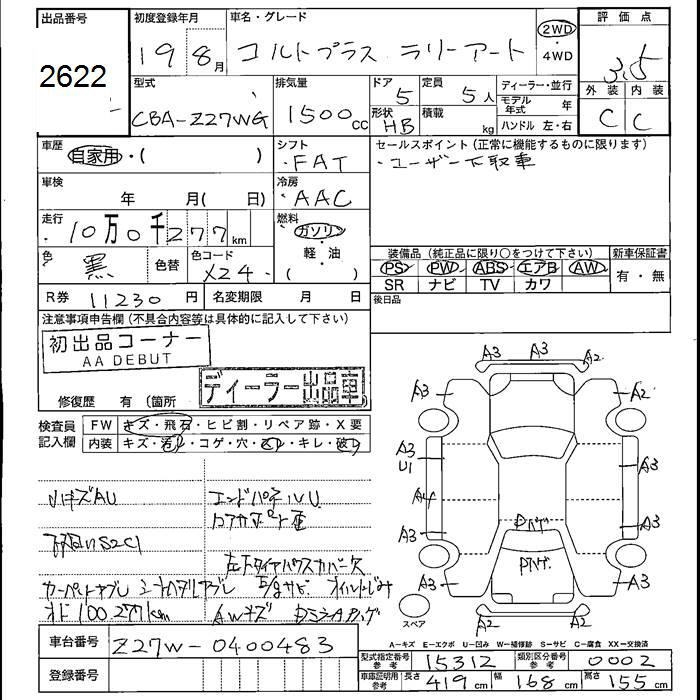 出品番号 初度登録年月 車名・グレード 2WD・4WD 評価点
2622 19 8月 コルトプラス ラリーアート 3.5
型式 排気量 ドア 定員 ディーラー・並行 外装 内装
CBA-Z27WG 1500cc 5 5人 モデル年式 年 C C
形状 HB 積載 kg ハンドル 左・右
車歴 シフト セールスポイント(正常に機能するものに限ります)
自家用・( ) FAT ・ユーザー下取車
車検 冷房
年 月( 日) AAC
走行 燃料
10万0千277km ガソリン・軽・油( )
装備品(純正品に限り○をつけて下さい) 新車保証書
色 黒 色替 色コード X24 PS PW ABS エアB AW 有・無
SR ナビ TV カワ
R券 11230円 名変期限 月 日 後日品
注意事項申告欄(不具合内容等は具体的に記入して下さい)
初出品コーナー
AA DEBUT
ディーラー出品車
修復歴 有(箇所
検査員記入欄 FW キズ・飛石・ヒビ割・リペア跡・X要
内装 キズ・汚レ・コゲ・穴・・キレ・破レ
小キズAU エンドパネルU
コアサポート歪
下廻りS2C1
左下タイヤハウスカバー欠
カーペットヨゴレ シートヘタレヨゴレ E/gサビ オイルにじみ
オド100,277km AWキズ
A3 A3 A2
A3 A2
A3 U1 A3
A4
A3 A3
A2 A2
スペア
車台番号 Z27W-0400483
A-キズ E-エクボ U-凹み W-補修跡 S-サビ C-腐食 XX-交換済
登録番号
型式指定番号 参考 15312 類別区分番号 参考 0002
車庫証明用 参考 長さ 419cm 幅 168cm 高さ 155cm